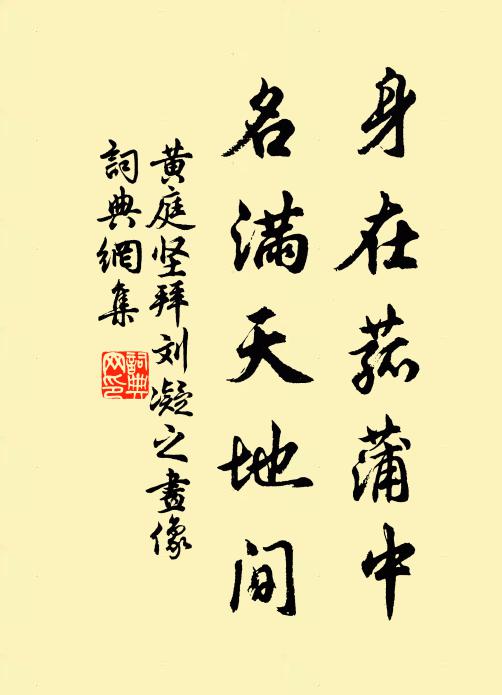 身在菰蒲中
名満天地间
黄庭坚拜刘凝之畫像
詞典網集
詞典网印